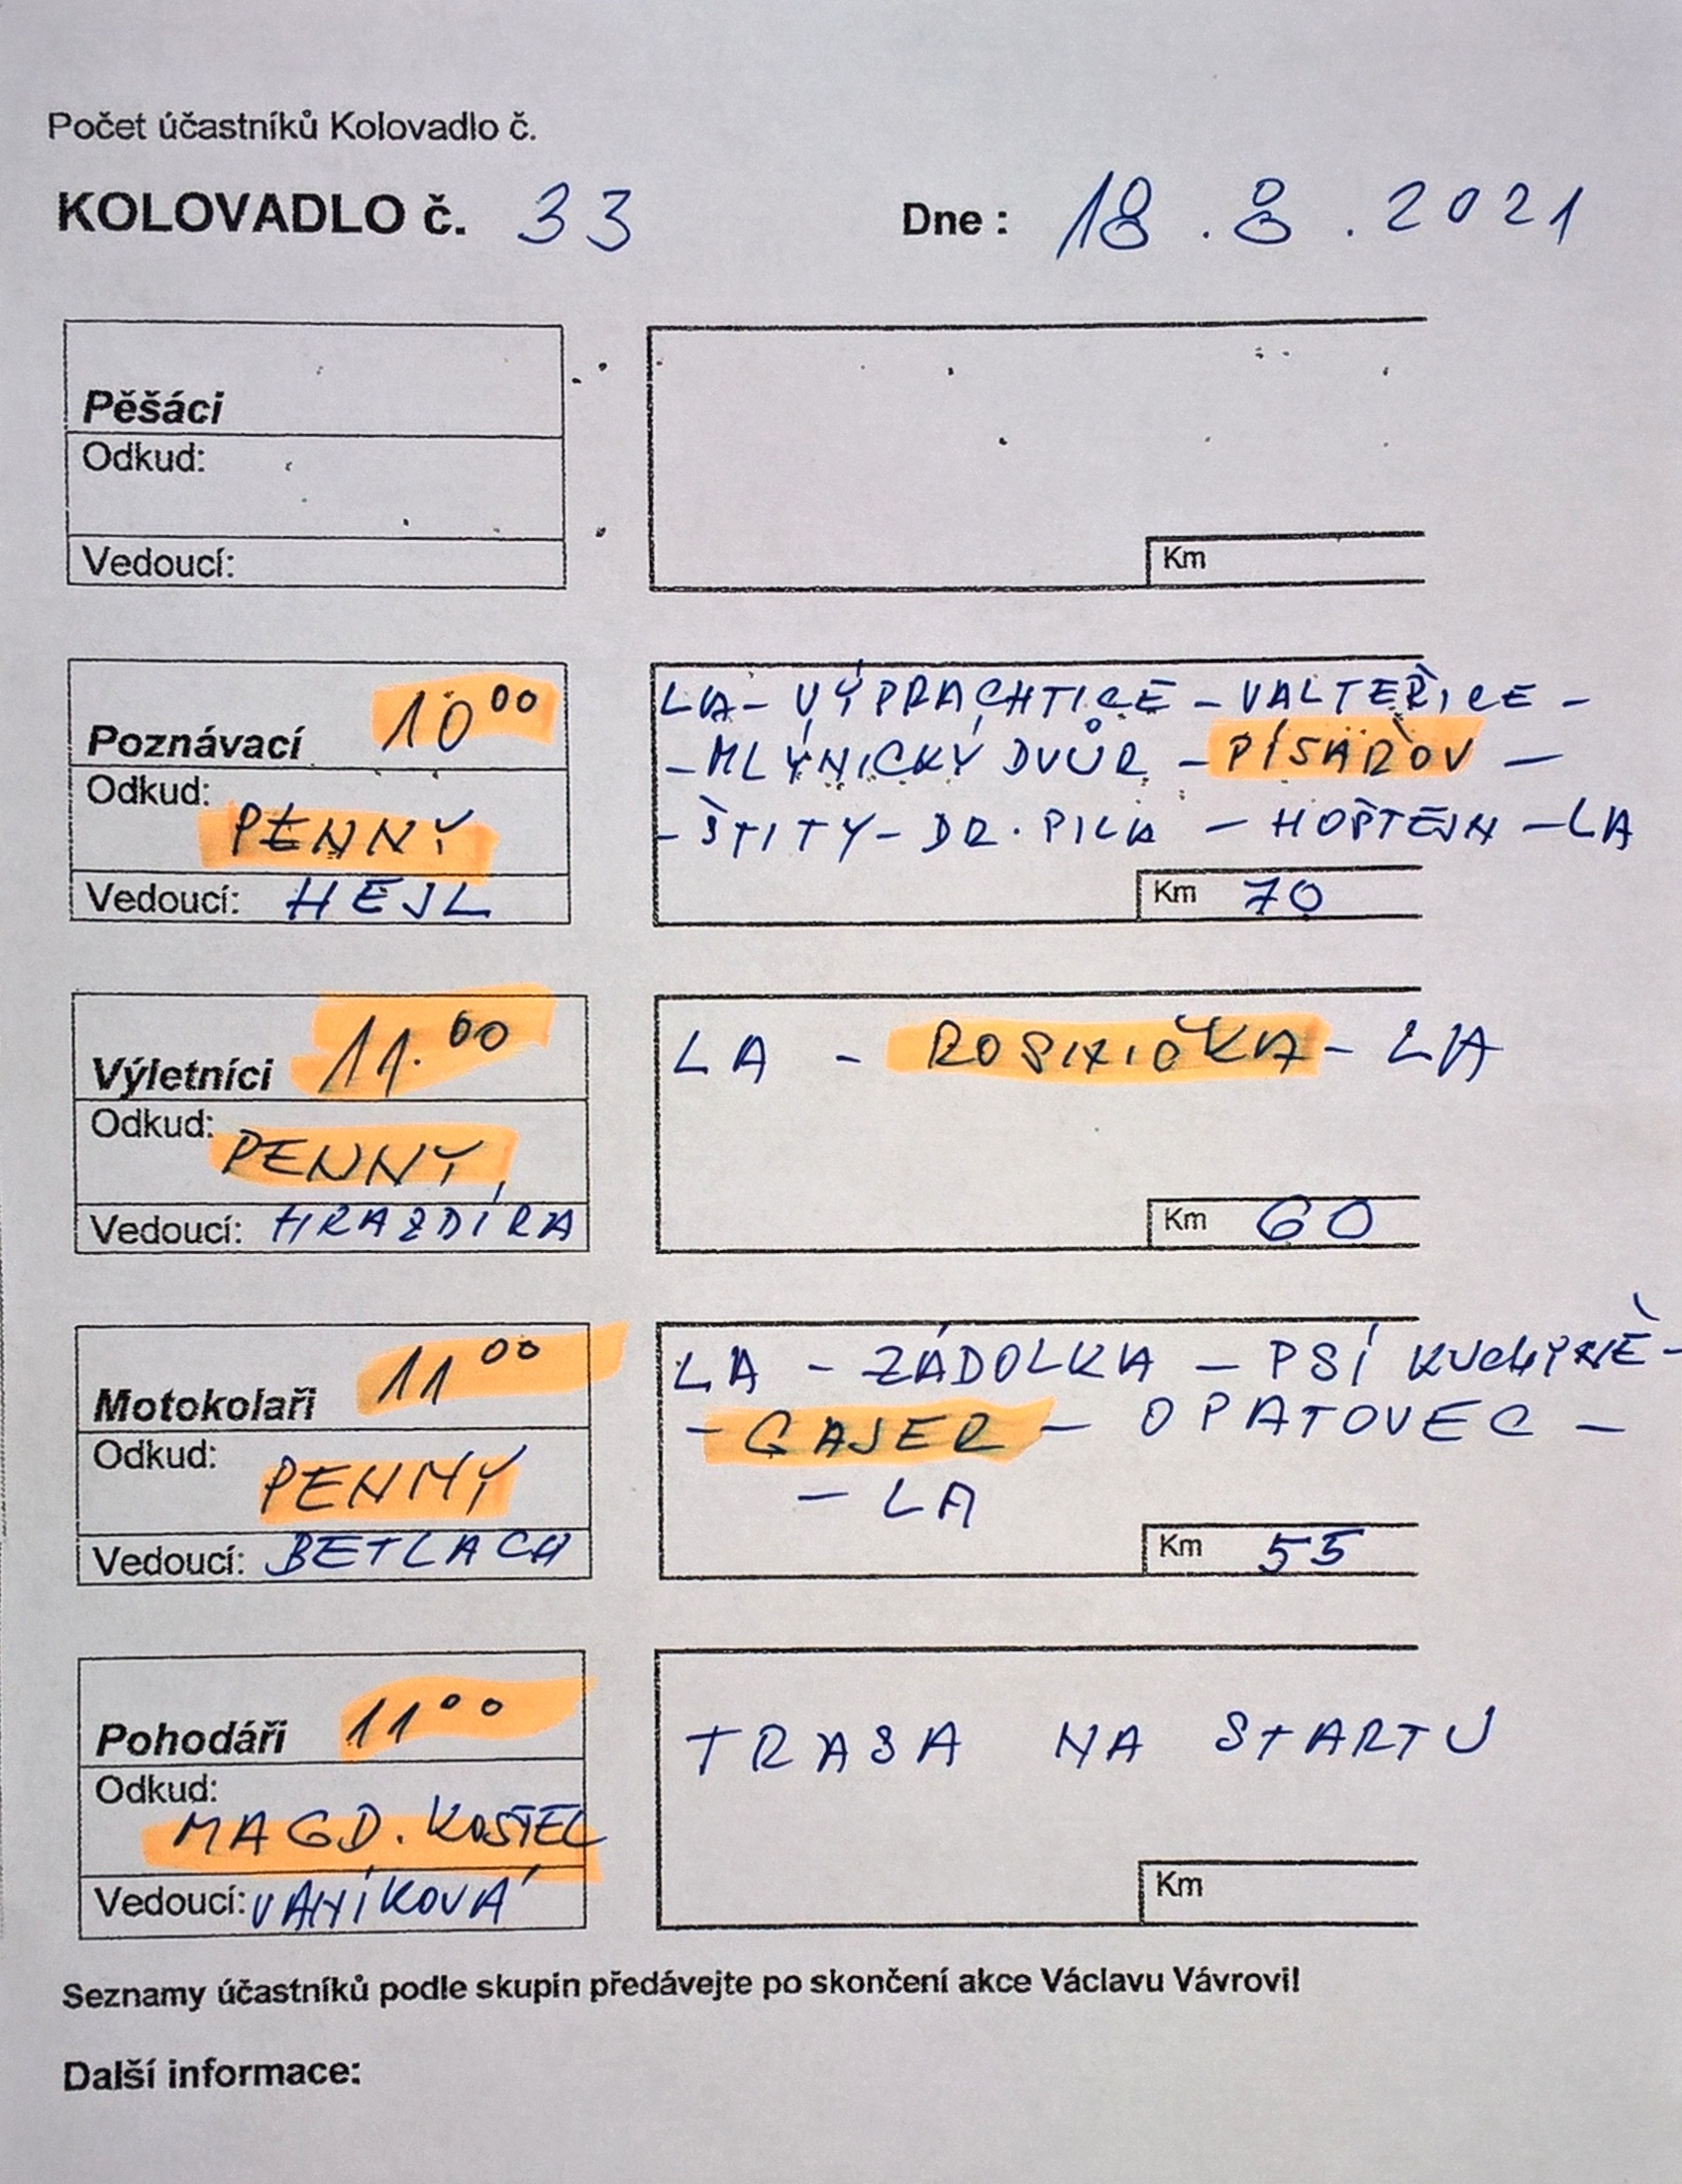 Počet účastníků Kolovadlo č.
KOLOVADLO č. 33 Dne : 18.8.2021
Pěšáci
Odkud:
Vedoucí:
Km
Poznávací 10 00
Odkud:
PENNY
Vedoucí: HEJL
LA - VÝPRACHTICE - VALTEŘICE -
- MLÝNICKÝ DVŮR - PÍSAŘOV -
- ŠTÍTY - DR. PILA - HOŠTEJN - LA
Km 70
Výletníci 11.00
Odkud:
PENNY
Vedoucí: HRAZDÍRA
LA - ROSNIČKA - LA
Km 60
Motokolaři 11 00
Odkud:
PENNY
Vedoucí: BETLACH
LA - ZÁDOLKA - PSÍ KUCHYNĚ -
- GAJER - OPATOVEC -
- LA
Km 55
Pohodáři 11 00
Odkud:
MAGD. KOSTEL
Vedoucí: VANÍKOVÁ
TRASA NA STARTU
Km
Seznamy účastníků podle skupin předávejte po skončení akce Václavu Vávrovi!
Další informace: